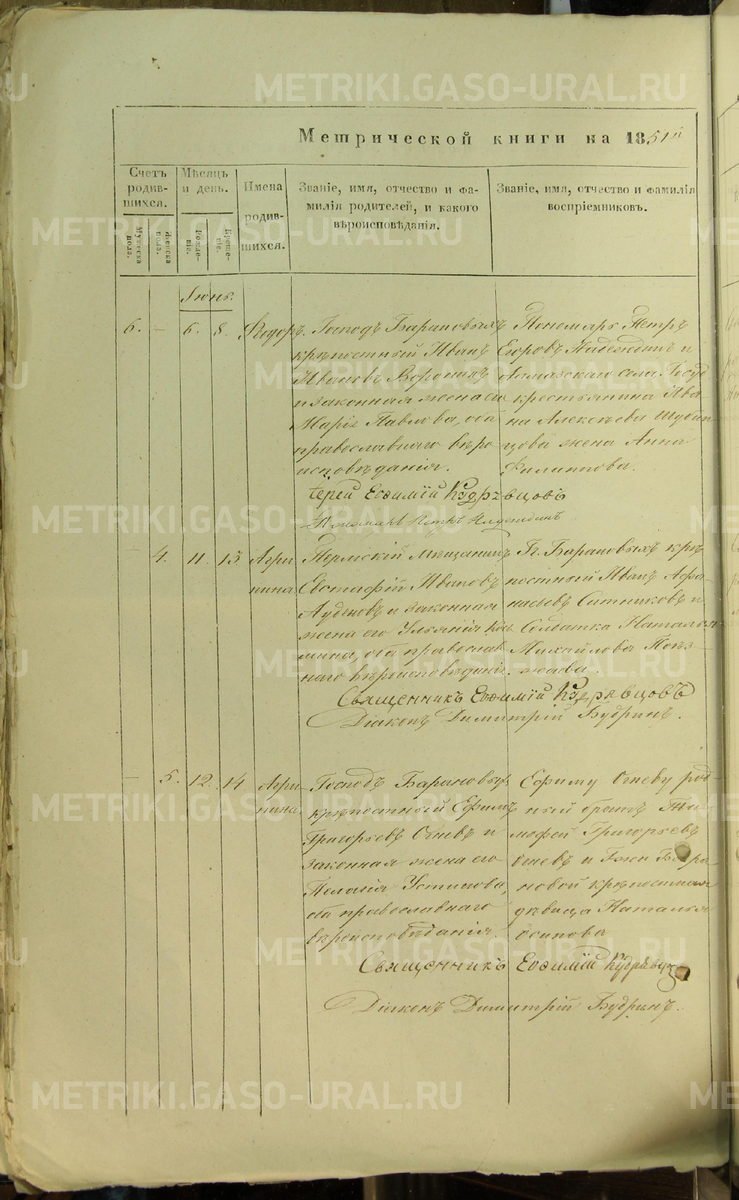 Метрической книги на 1851й
Счетъ родив-шихся.
Мѣсяцъ и день.
Имена родив-шихся.
Званіе, имя, отчество и фа-
милія родителей, и какого
вѣроисповѣданія.
Званіе, имя, отчество и фамилія
воспріемниковъ.
Мужеска пола.
Женска пола.
Рожде-ніе.
Креще-ніе.
Іюнь.
6. - 6. 8. Ѳедоръ.
Господъ Барановыхъ
крѣпостный Иванъ
Ивановъ
и законная жена его
Марія Павлова, оба
православнаго вѣро
исповѣданія.
Пономарь Петръ
Егоровъ Надеждинъ и
крестьянина Ива
на Алексѣева
цова жена Анна
Филиппова.
Іерей Евѳимій Кудрявцовъ
Пономарь Петръ Надеждинъ
- 4. 11. 13 Агри
пина
Пермскій Мѣщанинъ
Евстафій Ивановъ
и законная
жена его Ульянія Коз
мина, оба православ
наго вѣроисповѣданія.
Гг. Барановыхъ крѣ
постный Иванъ Аѳа
насьевъ Ситниковъ и
Солдатка Наталья
Михайлова
Священникъ Евѳимій Кудрявцовъ
Діаконъ Димитрій Будринъ.
- 5. 12. 14 Агри
пина.
Господъ Барановыхъ
крѣпостный Ефимъ
Григорьевъ Огневъ и
законная жена его
Пелагія Устинова,
оба православнаго
вѣроисповѣданія.
Ефиму Огневу род
ный братъ Ти
мофей Григорьевъ
Огневъ и Гжи Бара
новой крѣпостная
дѣвица Наталья
Осипова
Священникъ Евѳимій Кудрявцовъ
Діаконъ Димитрій Будринъ.
METRIKI.GASO-URAL.RU